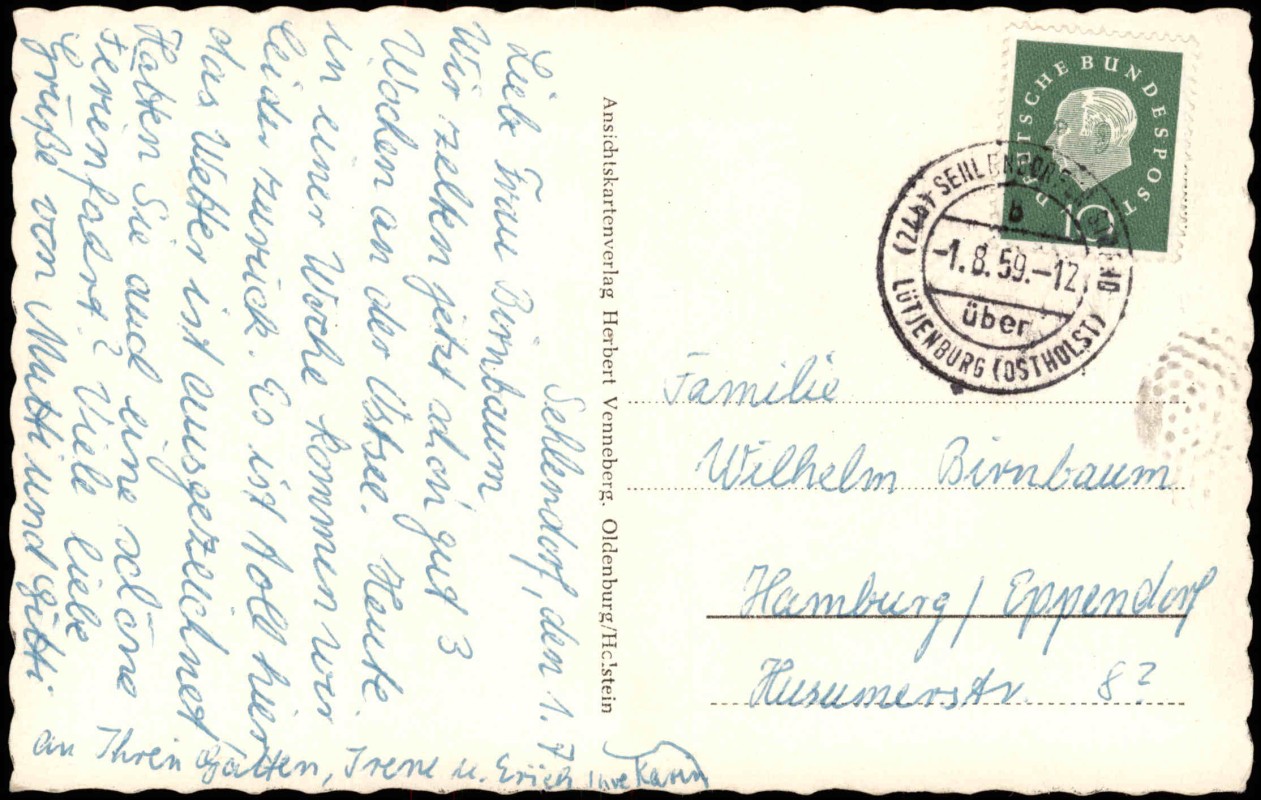 Sehlendorf, den 1. 7
Liebe Frau Birnbaum
Wir zelten jetzt schon gut 3
Wochen an der Ostsee. Heute
in einer Woche kommen wir
leider zurück. Es ist toll hier
das Wetter ist ausgezeichnet
Hatten Sie auch eine schöne
Ferienfahrt? Viele liebe
Grüße von Mutti und Gitti
an Ihren Gatten, Irene u. Erich Ihre Karin
Ansichtskartenverlag Herbert Venneberg, Oldenburg/Holstein
DEUTSCHE BUNDESPOST
10
(24b) SEHLENDORFER STRAND
b
-1.8.59.-12
über
LÜTJENBURG (OSTHOLST)
Familie
Wilhelm Birnbaum
Hamburg/Eppendorf
Husumerstr. 8?